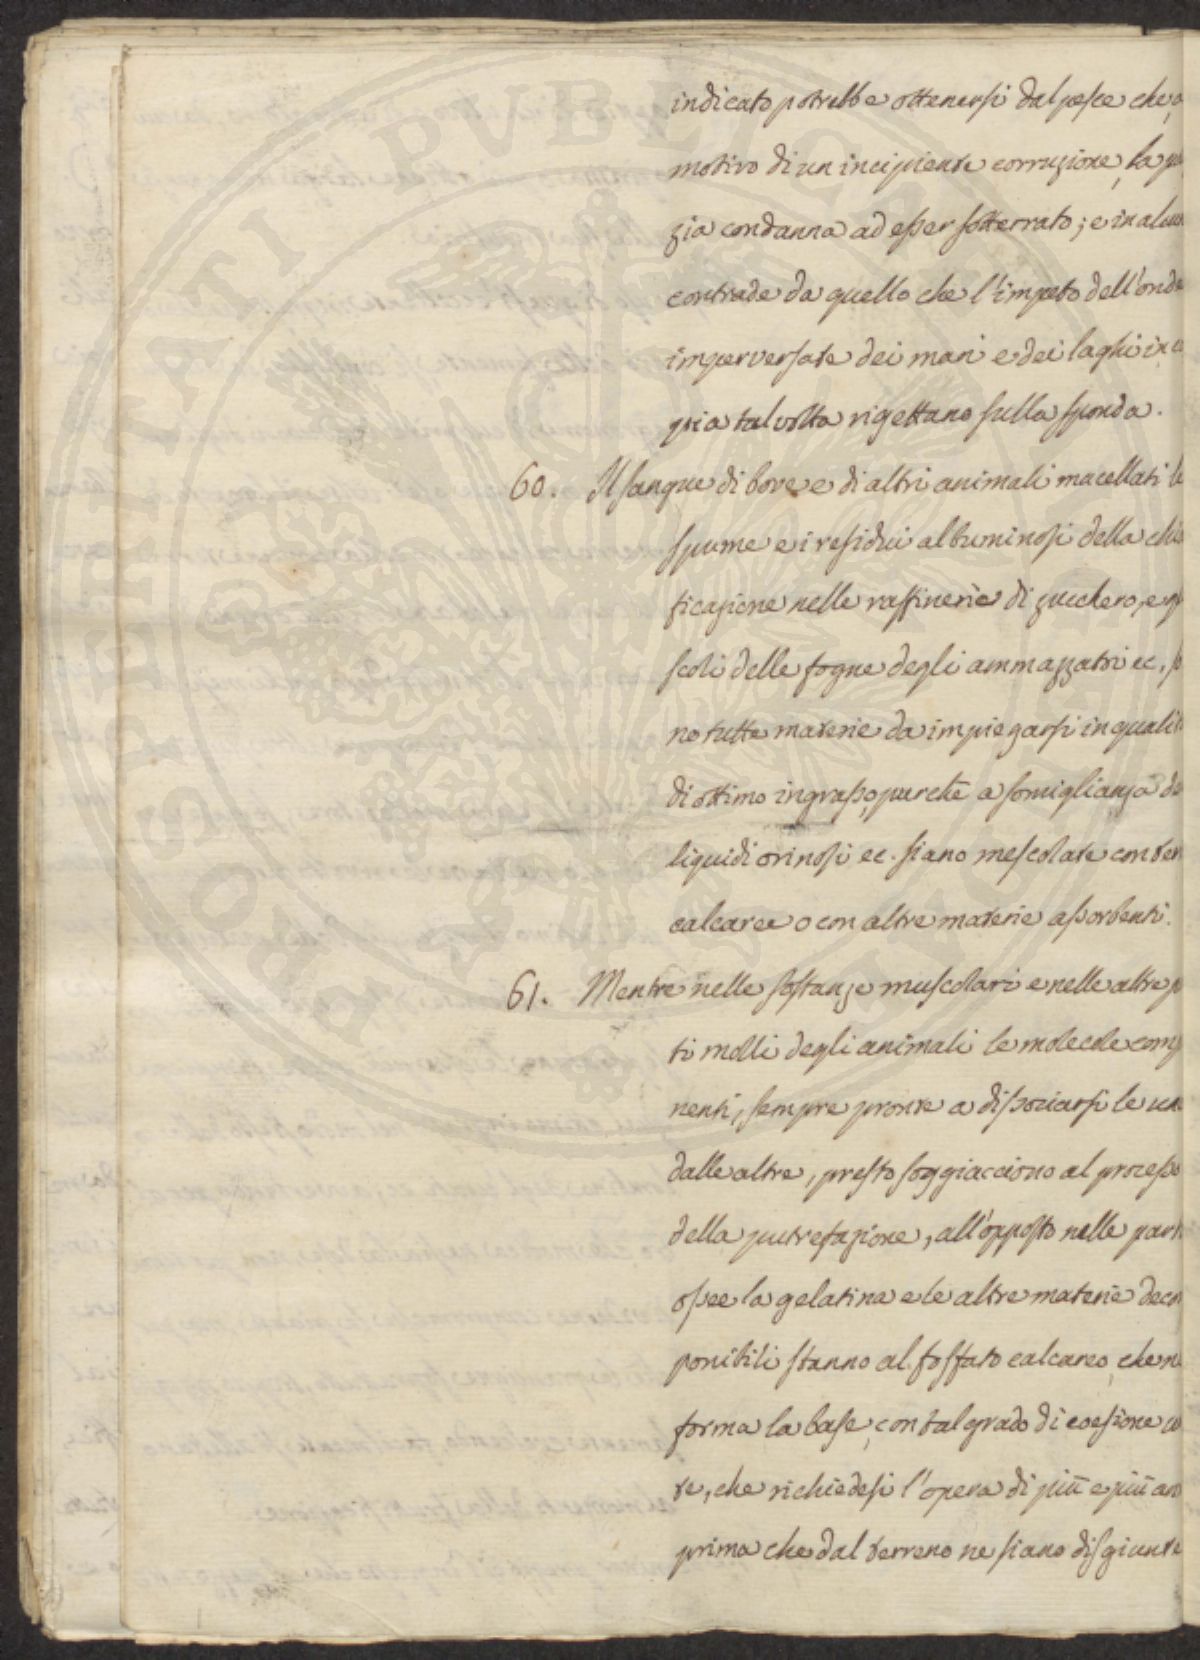 indicato potrebbe ottenersi dal pesce che, a
motivo di un incipiente corruzione, la pu
zia condanna ad esser sotterrato; e in alcun
contrade da quello che l'impeto dell'onde
imperversate dei mari e dei laghi in co
pia talvolta rigettano sulla sponda.
60. Il sangue di bove e di altri animali macellati le
spume e i residui albuminosi della chia
ficazione nelle raffinerie di zucchero, e gli
scoli delle fogne degli ammazzatoi ec, so
no tutte materie da impiegarsi in qualità
di ottimo ingrasso, purchè a somiglianza de
liquidi orinosi ec. siano mescolate con terr
calcaree o con altre materie assorbenti.
61. Mentre nelle sostanze muscolari e nelle altre p
ti molli degli animali le molecole comp
nenti, sempre pronte a dissociarsi le une
dalle altre, presto soggiacciono al processo
della putrefazione, all'opposto nelle parti
ossee la gelatina e le altre materie decom
ponibili stanno al fosfato calcareo, che ne
forma la base, con tal grado di coesione co
te, che richiedesi l'opera di più e più an
prima che dal terreno ne siano disgiunte
PROSPERITATI PVBLICAE